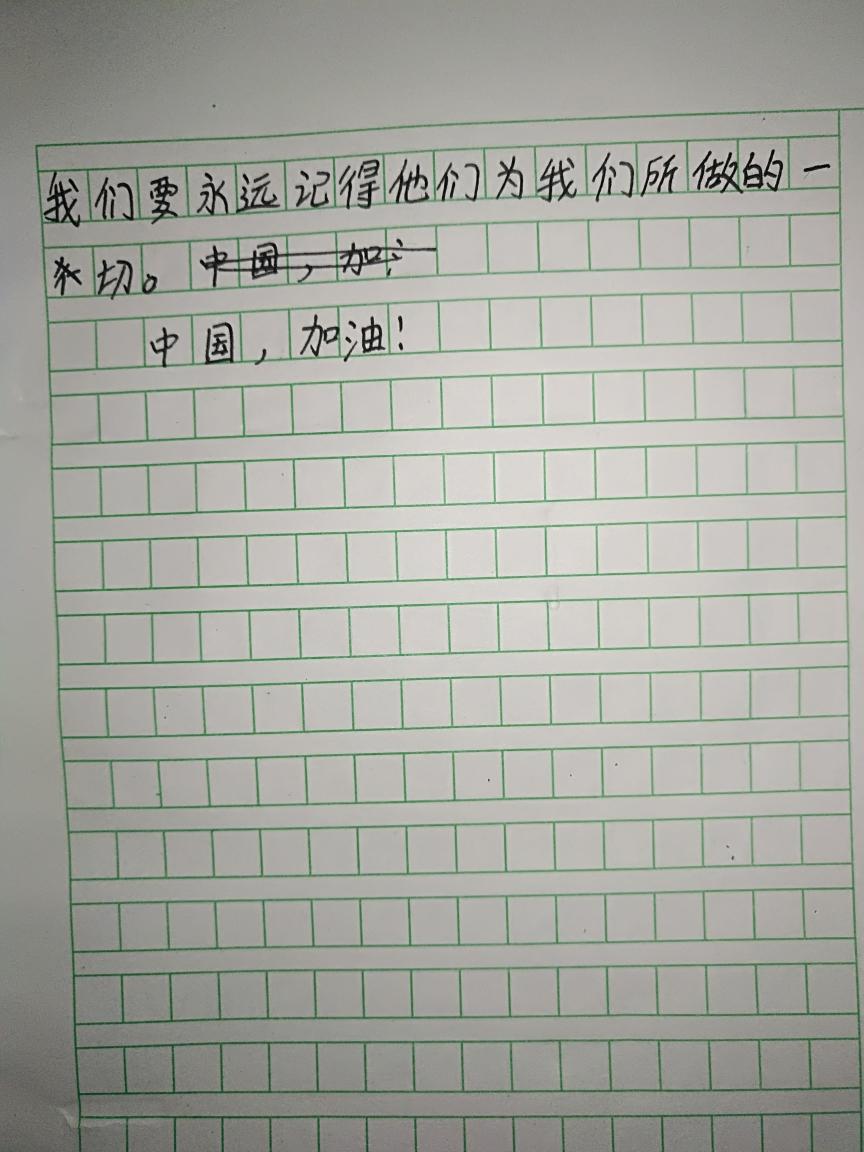 我们要永远记得他们为我们所做的一
切。中国，加氵
中国，加油！